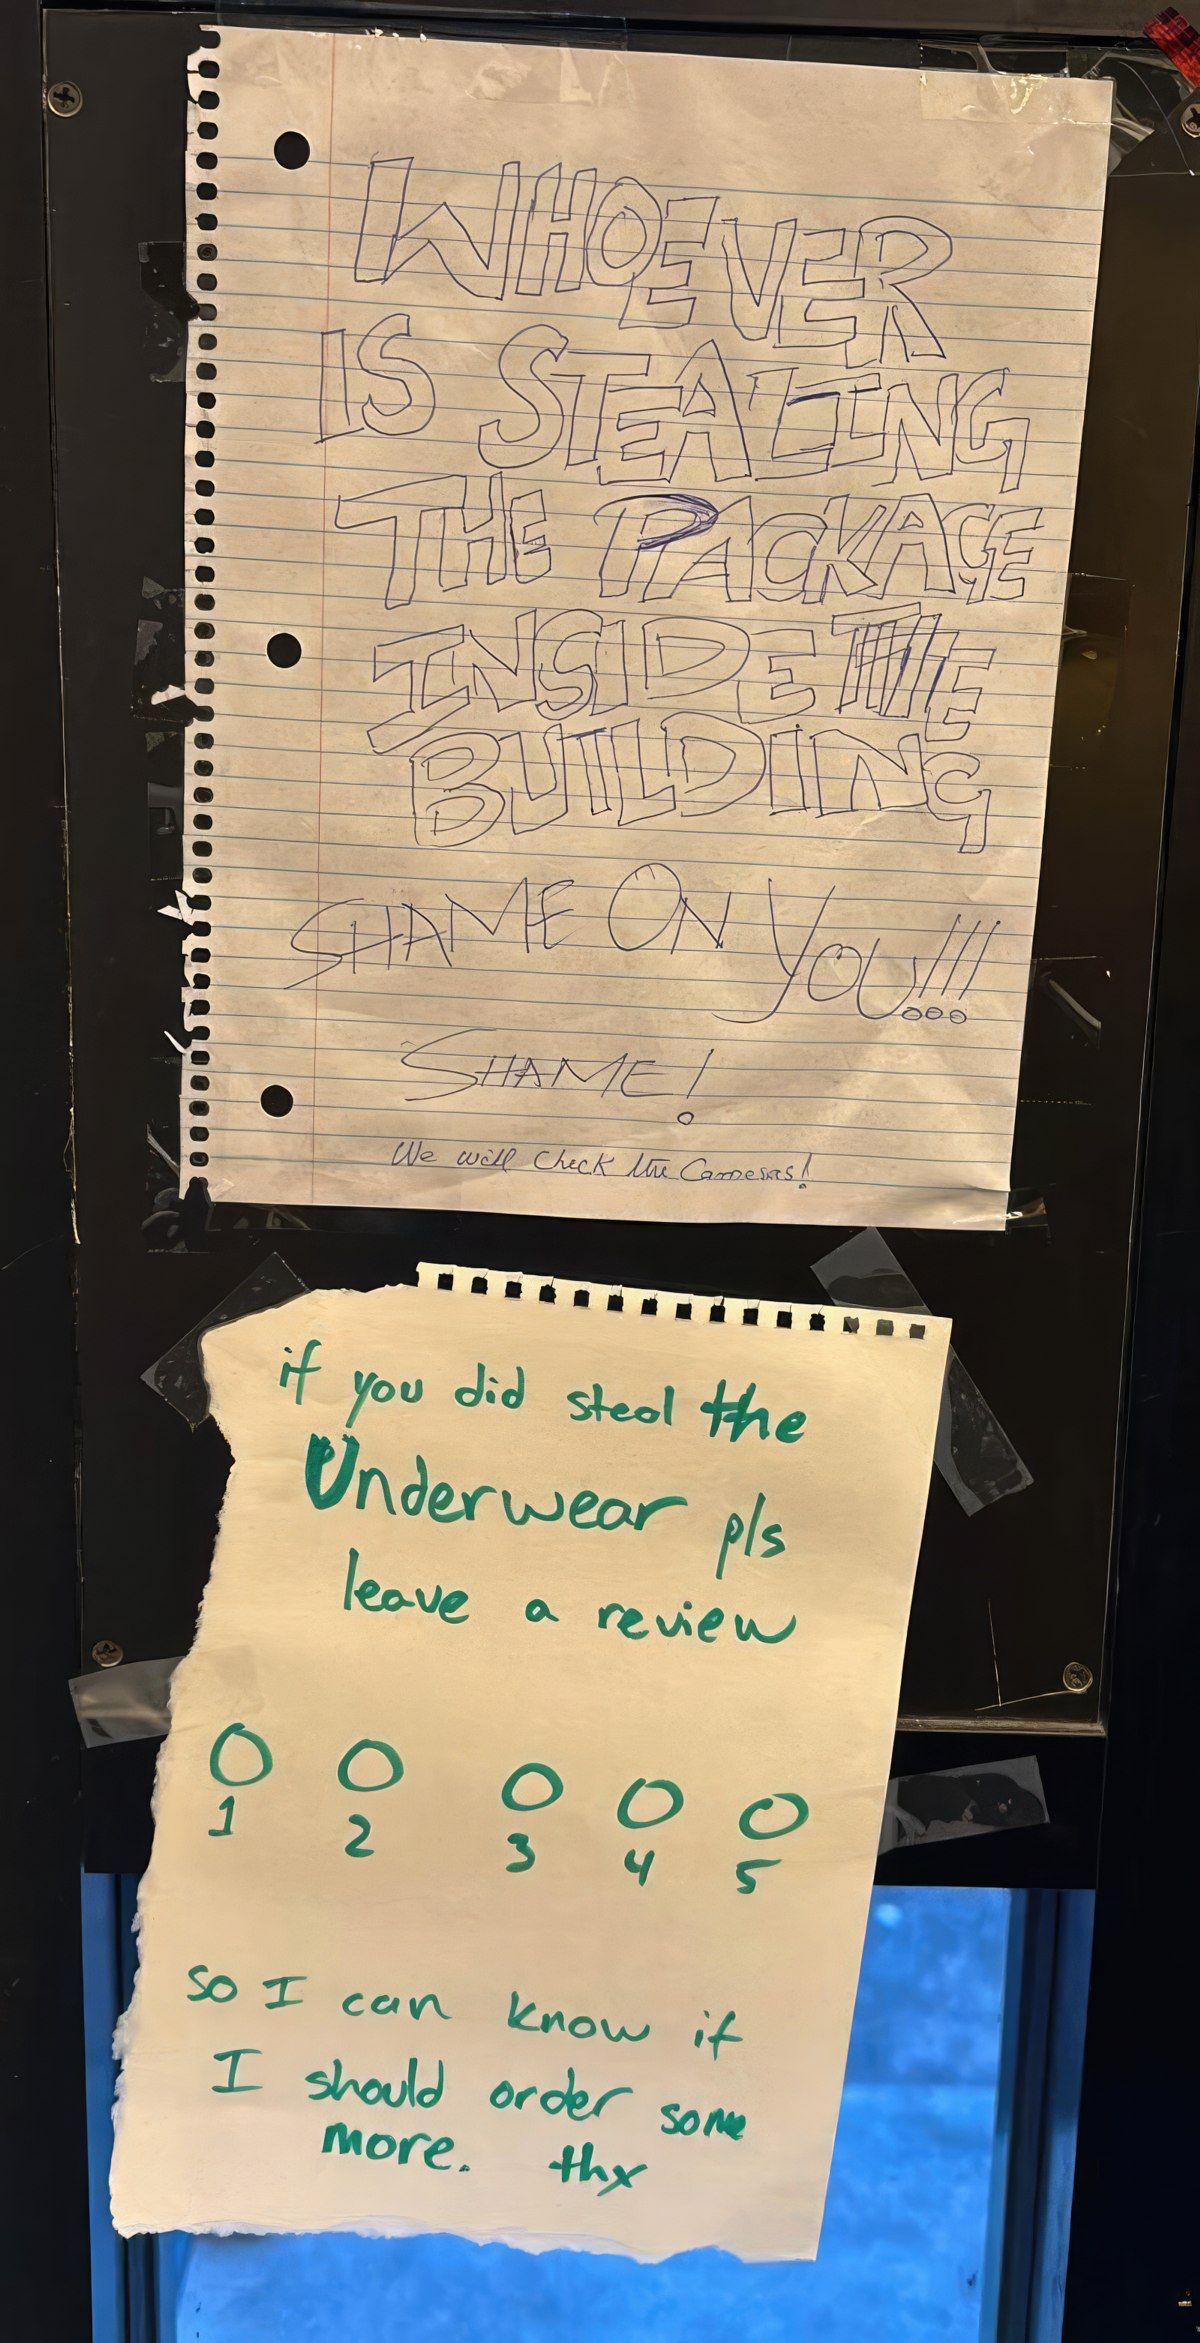 WHOEVER
IS STEALING
THE PACKAGE
INSIDE THE
BUILDING
SHAME ON YOU!!!
SHAME!
We will Check the Cameras!
if you did steal the
Underwear pls
leave a review
1 2 3 4 5
so I can know if
I should order some
more. thx